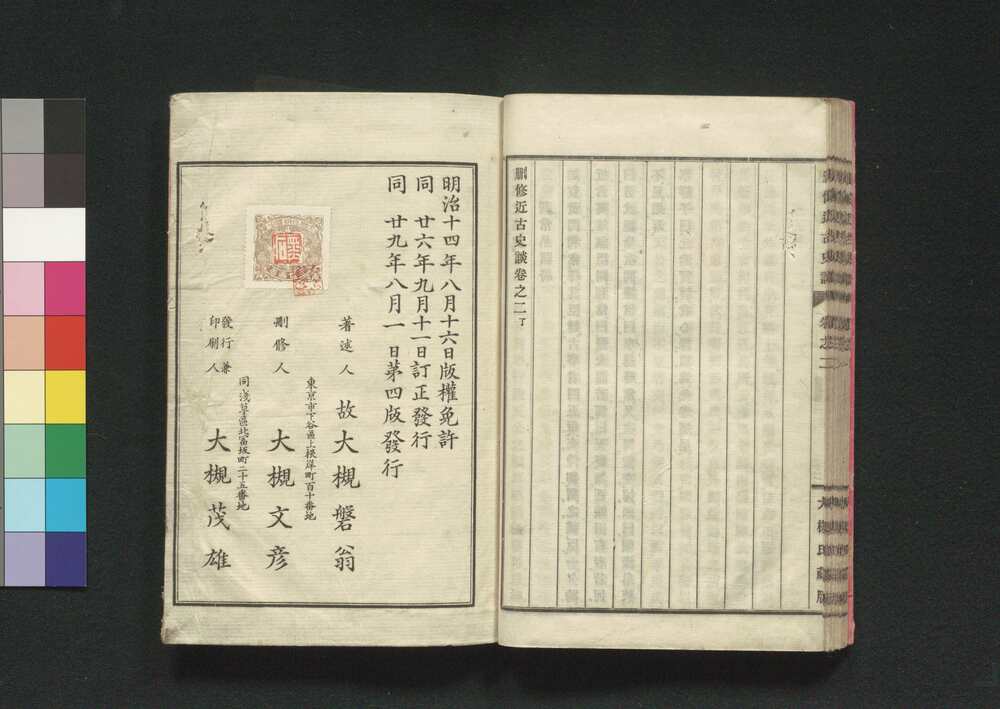 刪修近古史談卷之二丁
大槻氏藏版
明治十四年八月十六日版權免許
同 廿六年九月十一日訂正發行
同 廿九年八月一日第四版發行
著述人 故大槻磐翁
東京市下谷區上根岸町百十番地
刪修人 大槻文彦
同淺草區北富坂町二十五番地
發行兼印刷人 大槻茂雄